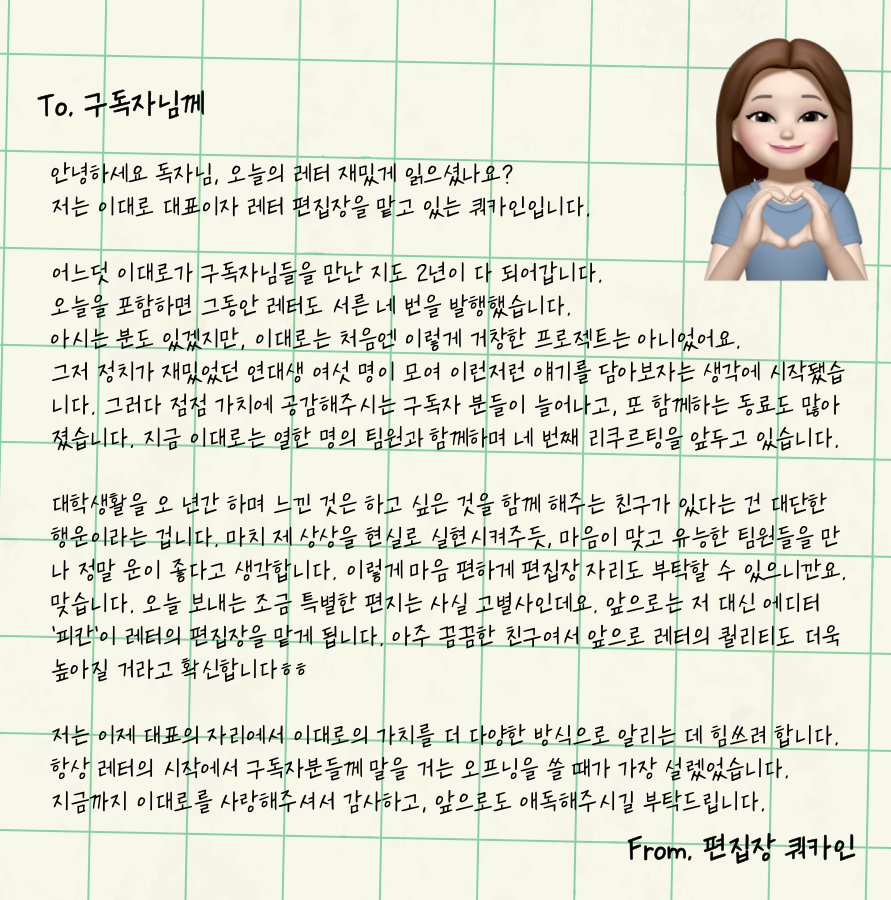 To. 구독자님께
안녕하세요 독자님, 오늘의 레터 재밌게 읽으셨나요?
저는 이대로 대표이자 레터 편집장을 맡고 있는 쿼카인입니다.
어느덧 이대로가 구독자님들을 만난 지도 2년이 다 되어갑니다.
오늘을 포함하면 그동안 레터도 서른 네 번을 발행했습니다.
아시는 분도 있겠지만, 이대로는 처음엔 이렇게 거창한 프로젝트는 아니었어요.
그저 정치가 재밌었던 연대생 여섯 명이 모여 이런저런 얘기를 담아보자는 생각에 시작됐습
니다. 그러다 점점 가치에 공감해주시는 구독자 분들이 늘어나고, 또 함께하는 동료도 많아
졌습니다. 지금 이대로는 열한 명의 팀원과 함께하며 네 번째 리쿠르팅을 앞두고 있습니다.
대학생활을 오 년간 하며 느낀 것은 하고 싶은 것을 함께 해주는 친구가 있다는 건 대단한
행운이라는 겁니다. 마치 제 상상을 현실로 실현시켜주듯, 마음이 맞고 유능한 팀원들을 만
나 정말 운이 좋다고 생각합니다. 이렇게 마음 편하게 편집장 자리도 부탁할 수 있으니깐요.
맞습니다. 오늘 보내는 조금 특별한 편지는 사실 고별사인데요. 앞으로는 저 대신 에디터
'피칸'이 레터의 편집장을 맡게 됩니다. 아주 꼼꼼한 친구여서 앞으로 레터의 퀄리티도 더욱
높아질 거라고 확신합니다ㅎㅎ
저는 이제 대표의 자리에서 이대로의 가치를 더 다양한 방식으로 알리는 데 힘쓰려 합니다.
항상 레터의 시작에서 구독자분들께 말을 거는 오프닝을 쓸 때가 가장 설렜었습니다.
지금까지 이대로를 사랑해주셔서 감사하고, 앞으로도 애독해주시길 부탁드립니다.
From. 편집장 쿼카인